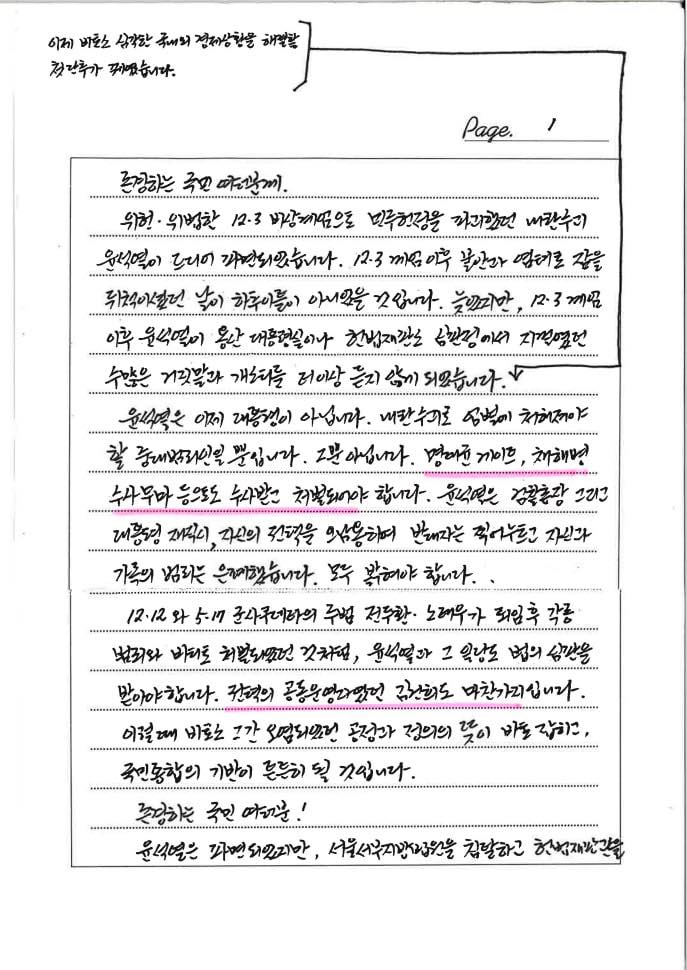 이제 비로소 심각한 국내외 경제상황을 해결할
첫단추가 꿰였습니다.
Page. 1
존경하는 국민 여러분께.
위헌·위법한 12.3 비상계엄으로 민주헌정을 파괴했던 내란수괴
윤석열이 드디어 파면되었습니다. 12.3 계엄이후 불안과 염려로 잠을
뒤척이셨던 날이 하루이틀이 아니었을 것입니다. 늦었지만, 12.3 계엄
이후 윤석열이 용산 대통령실이나 헌법재판소 심판정에서 지껄였던
수많은 거짓말과 개소리를 더이상 듣지 않게 되었습니다.
윤석열은 이제 대통령이 아닙니다. 내란수괴로 엄벌에 처해져야
할 중대범죄인일 뿐입니다. 그뿐 아닙니다. 명태균 게이트, 채해병
수사무마 등으로도 수사받고 처벌되어야 합니다. 윤석열은 검찰총장 그리고
대통령 재직시, 자신의 권력을 오남용하며 반대자는 찍어누르고 자신과
가족의 범죄는 은폐했습니다. 모두 밝혀야 합니다.
12.12와 5.17 군사쿠데타의 주범 전두환·노태우가 퇴임후 각종
범죄와 비리로 처벌되었던 것처럼, 윤석열과 그 일당도 법의 심판을
받아야 합니다. 권력의 공동운영자였던 김건희도 마찬가지입니다.
이럴때 비로소 그간 오염되었던 공정과 정의의 뜻이 바로 잡히고,
국민통합의 기반이 튼튼히 될 것입니다.
존경하는 국민 여러분!
윤석열은 파면되었지만, 서울서부지방법원을 침탈하고 헌법재판관을